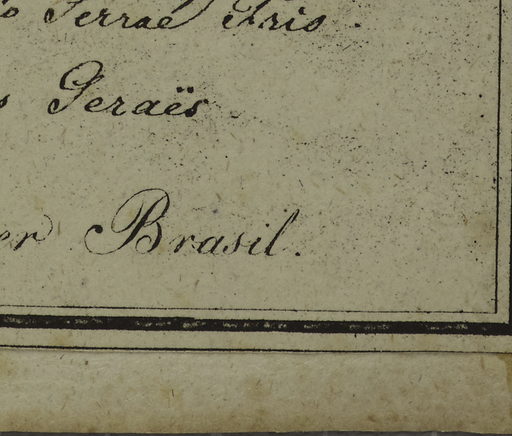 o Serrae Fris
s Geraës
er Brasil.